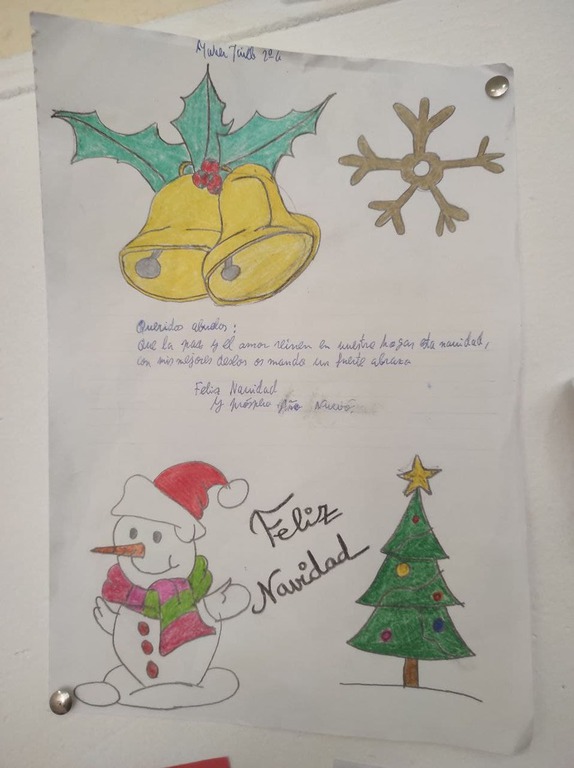 2º
Queridos abuelos:
Que la paz y el amor reinen en nuestro hogar esta navidad,
con mis mejores deseos os mando un fuerte abrazo
Feliz Navidad
Y próspero Año Nuevo.
Feliz
Navidad